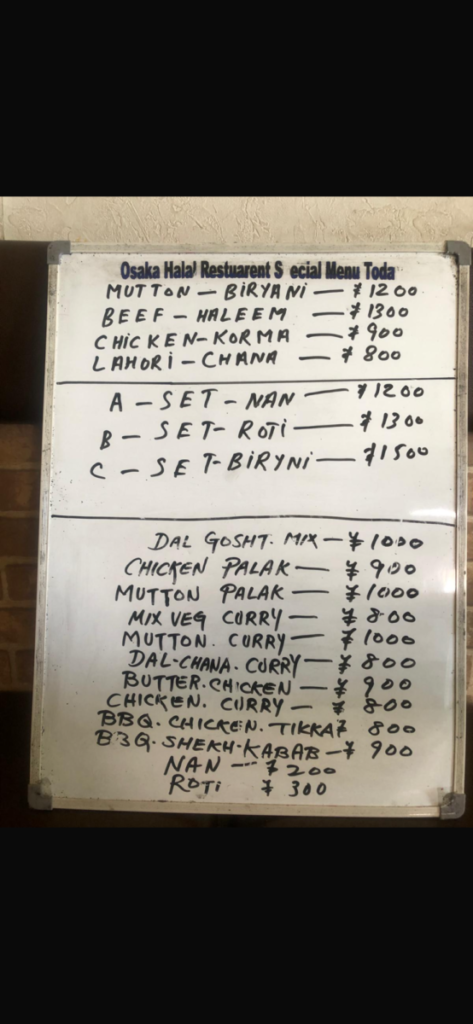 Osaka Halal Restuarent S ecial Menu Toda
MUTTON — BIRYANI — ¥1200
BEEF - HALEEM — ¥1300
CHICKEN-KORMA — ¥900
LAHORI - CHANA — ¥800
A - SET - NAN — ¥1200
B - SET- ROTI — ¥1300
C - SET-BIRYNI — ¥1500
DAL GOSHT. MIX — ¥1000
CHICKEN PALAK — ¥900
MUTTON PALAK — ¥1000
MIX VEG CURRY — ¥800
MUTTON. CURRY — ¥1000
DAL-CHANA. CURRY — ¥800
BUTTER.CHICKEN — ¥900
CHICKEN. CURRY — ¥800
BBQ. CHICKEN. TIKKA ¥ 800
BBQ. SHEKH-KABAB — ¥ 900
NAN --- ¥200
ROTI ¥ 300